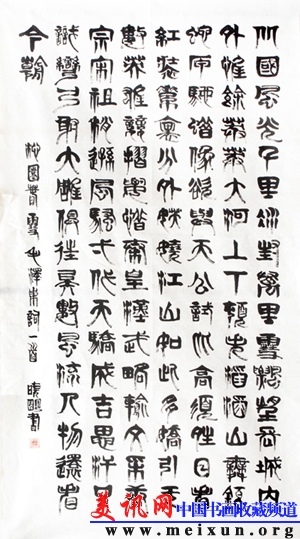 北國風光千里冰封萬里雪飄望長城內
外惟餘莽莽大河上下頓失滔滔山舞銀
蛇原馳蠟象欲與天公試比高須晴日看
紅裝素裹分外妖嬈江山如此多嬌引無
數英雄競折腰惜秦皇漢武略輸文采唐
宗宋祖稍遜風騷一代天驕成吉思汗只
識彎弓射大雕俱往矣數風流人物還看
今朝
沁園春雪毛澤東詞一首 書
美讯网 中国书画收藏频道
www.meixun.org